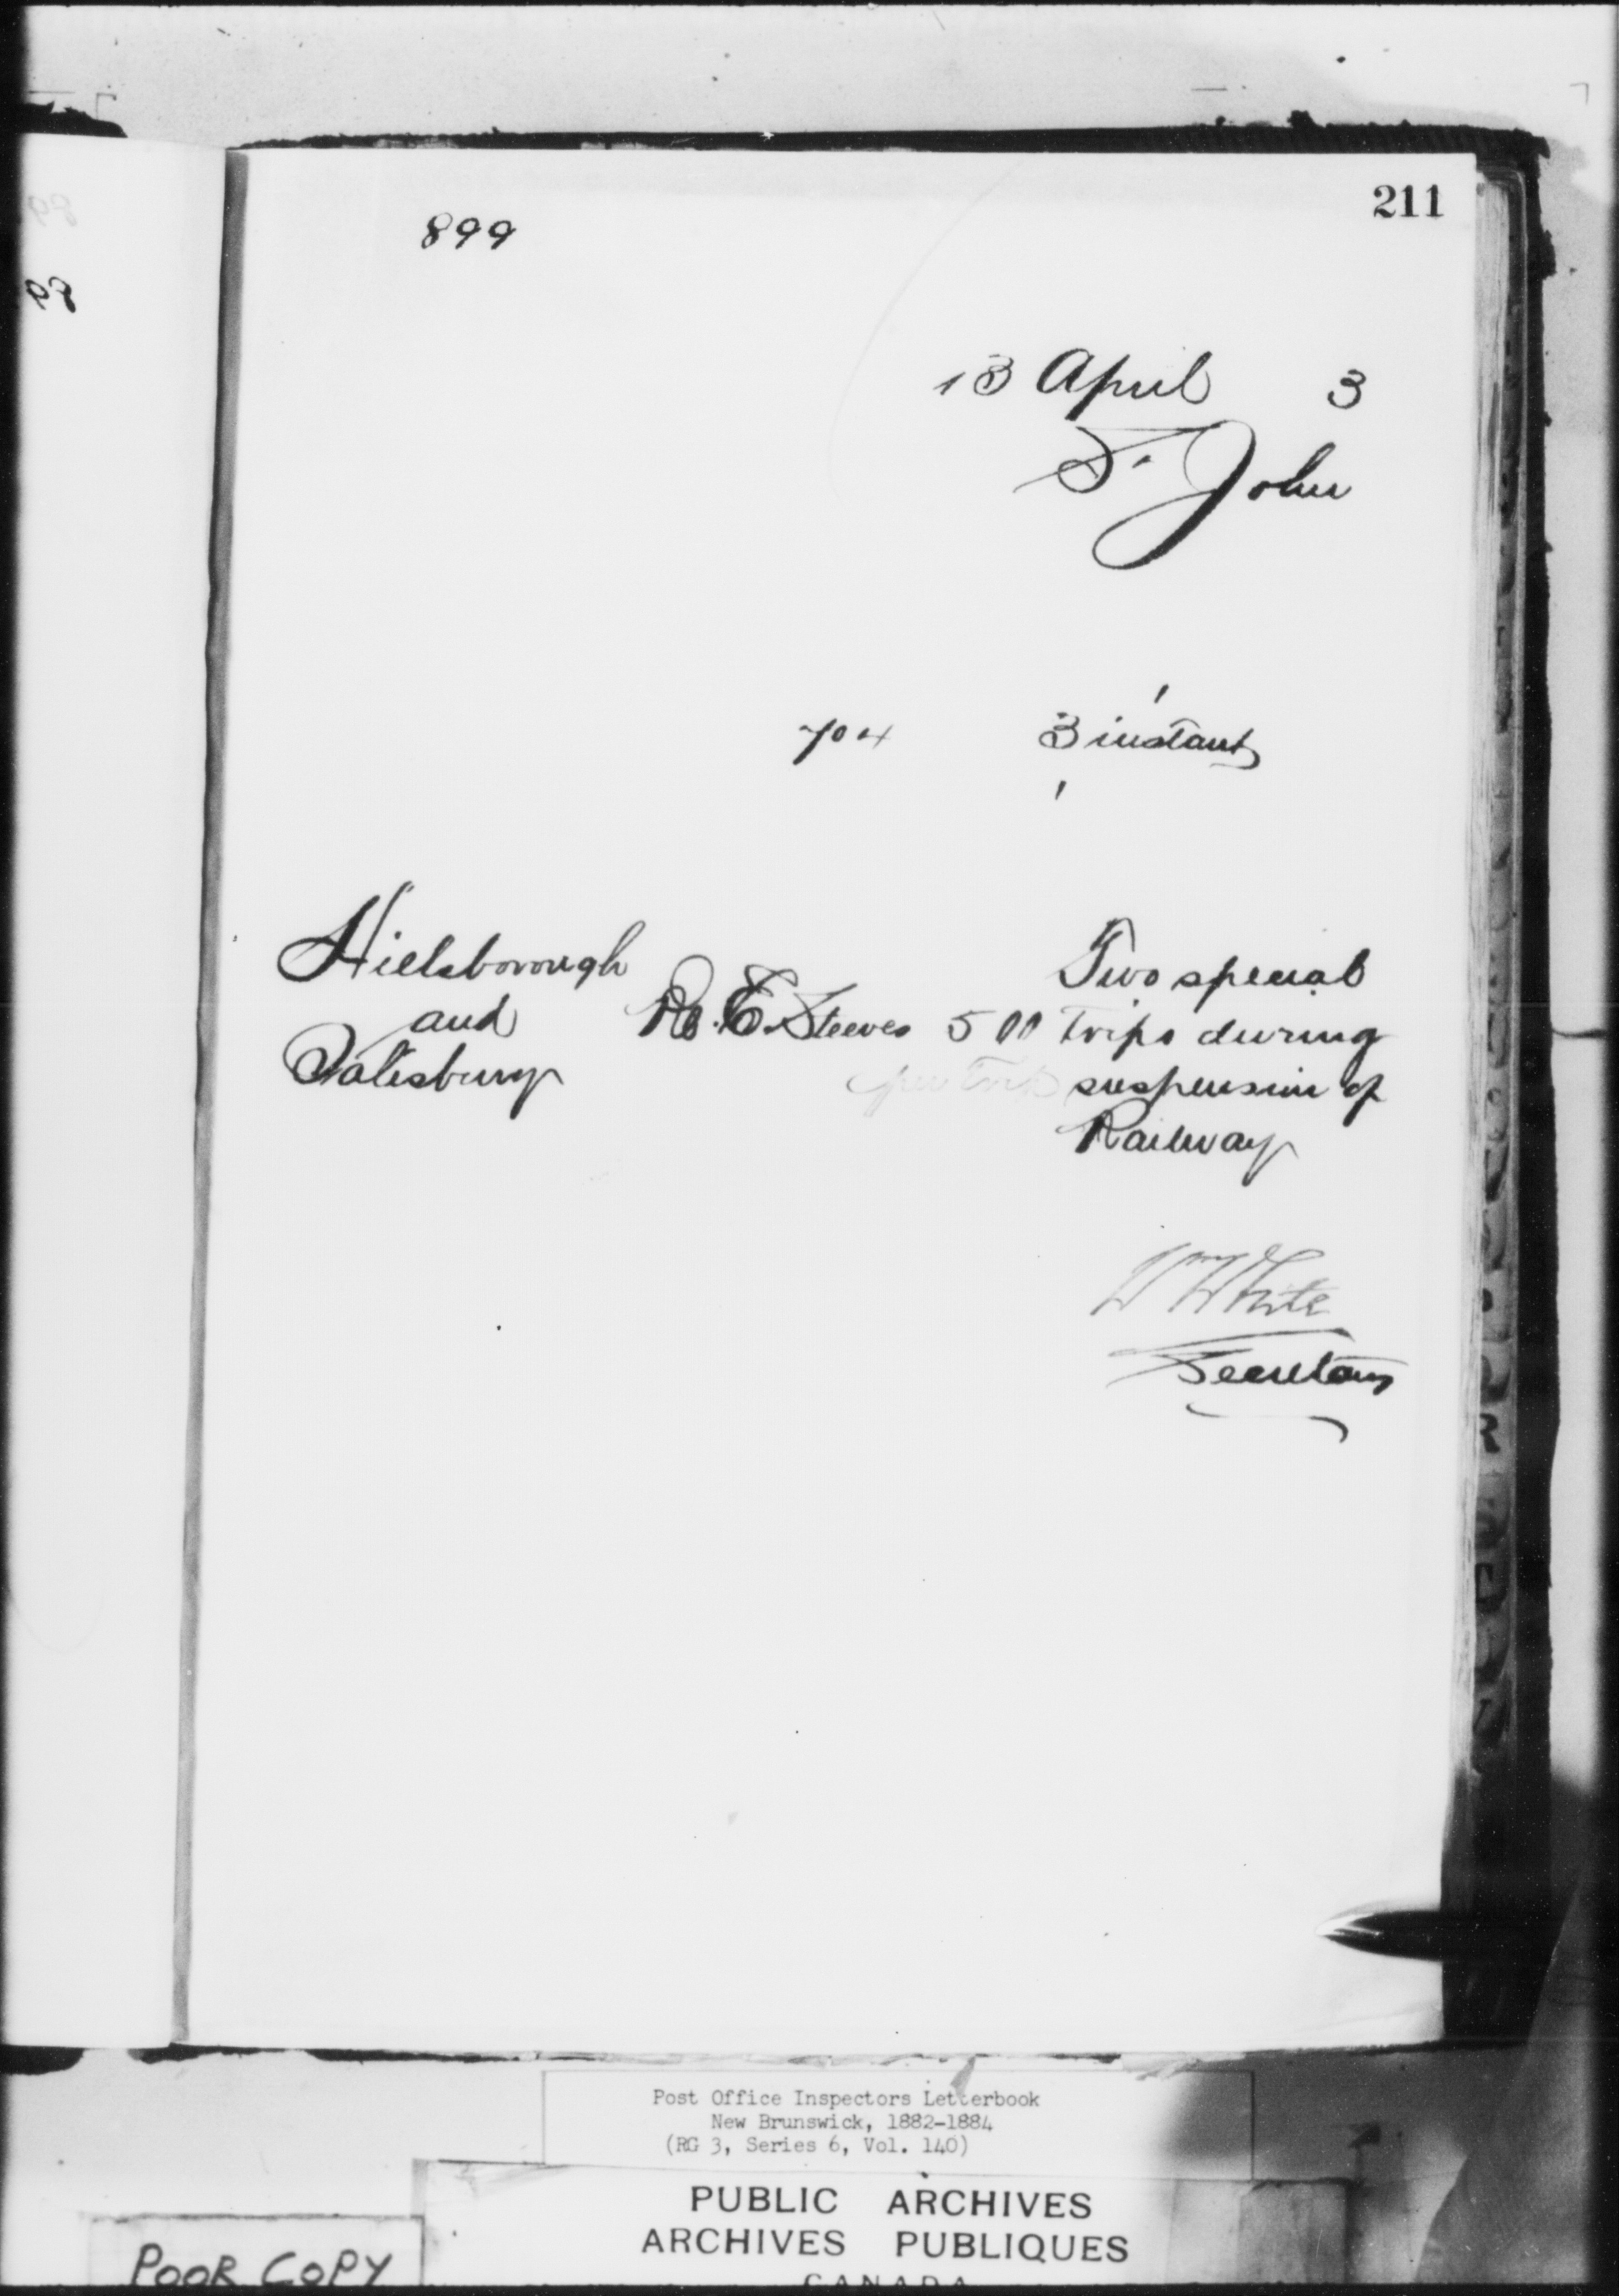 211
899
13 April 3
St. John
704 3 instant
Hillsborough
and
Salisbury
R. E. Steeves 5 00
per trip
Two special
trips during
suspension of
Railway
Wm White
Secretary
Post Office Inspectors Letterbook
New Brunswick, 1882-1884
(RG 3, Series 6, Vol. 140)
PUBLIC ARCHIVES
ARCHIVES PUBLIQUES
CANADA
POOR COPY